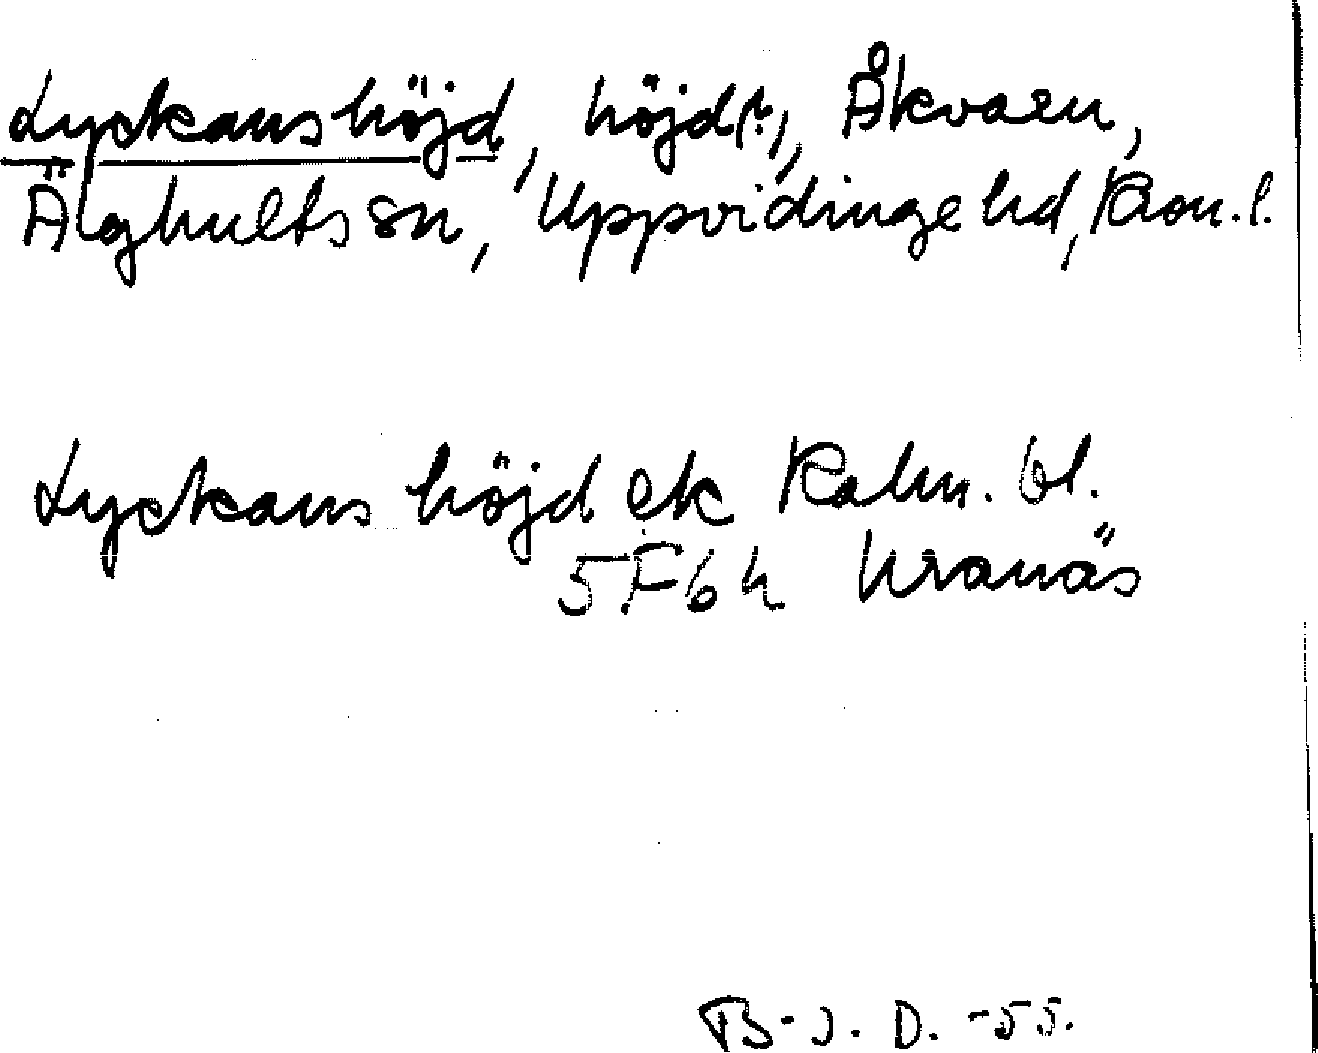 Lyckans höjd, höjd(?), Åkvarn,
Älghults sn, Uppvidinge hd, Kron. l.
Lyckans höjd ek Kalm. bl.
5F6h Kranäs
B-J. D. -55.